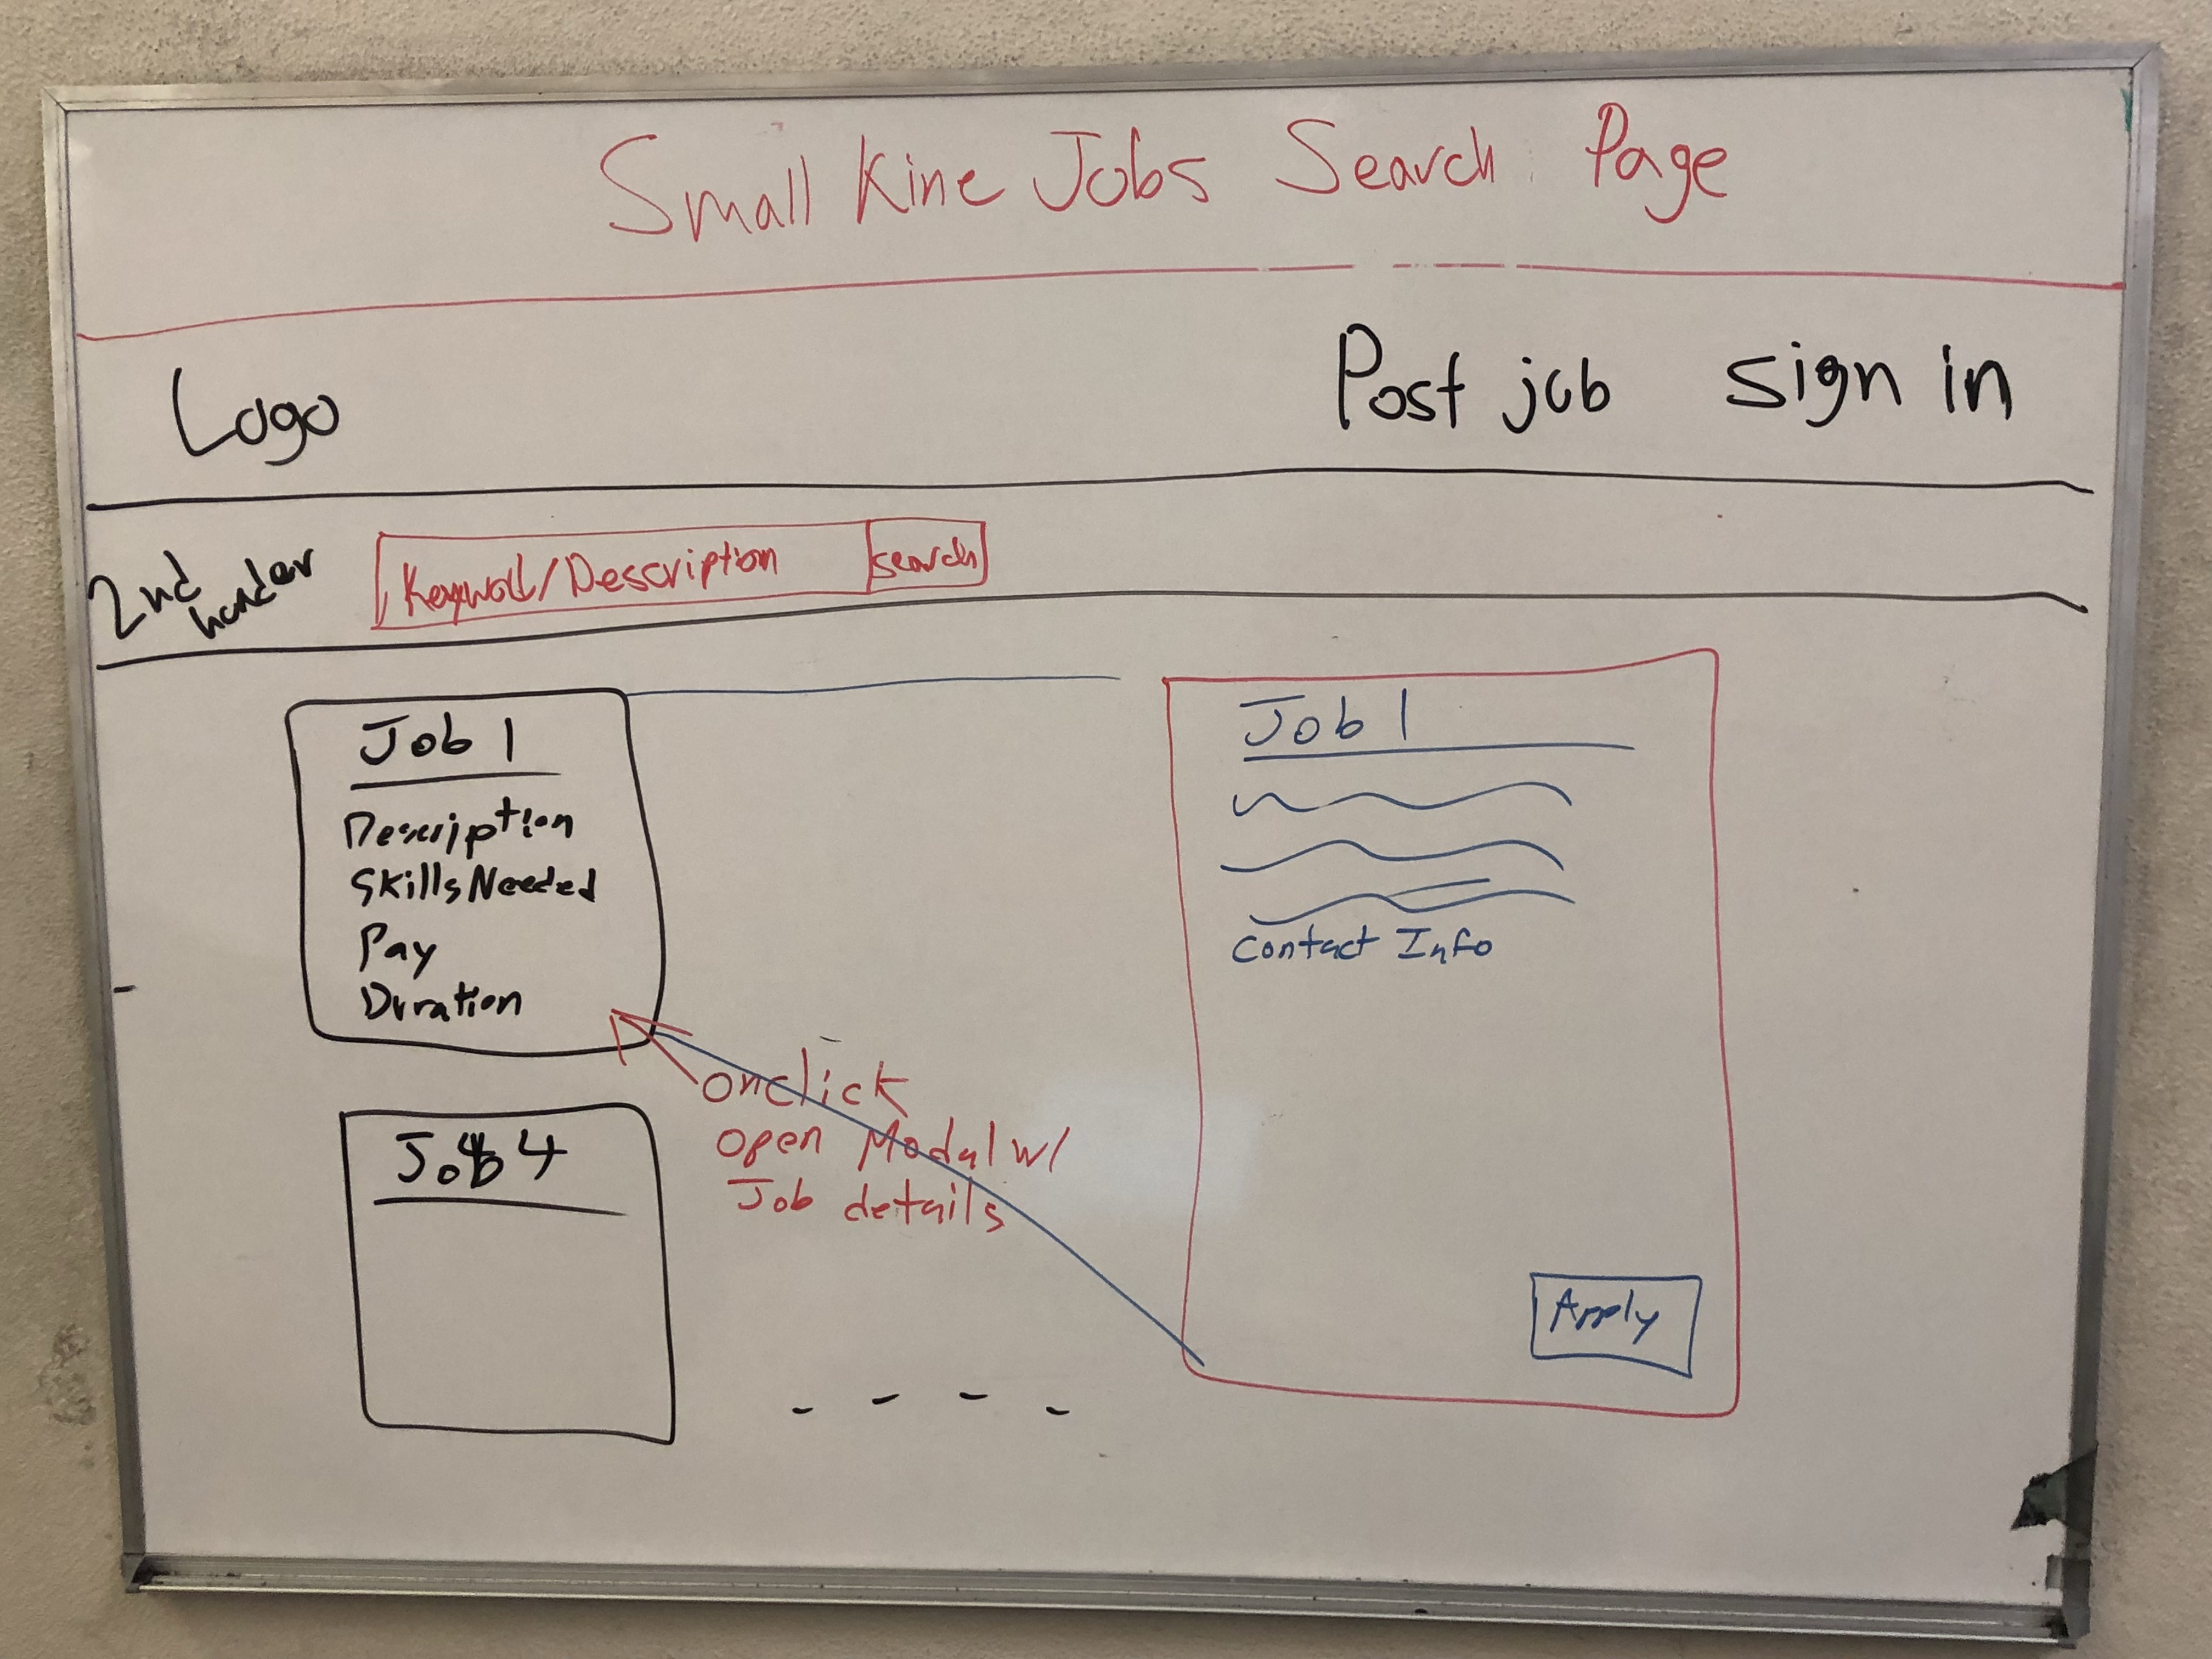 Small Kine Jobs Search Page
Logo Post job Sign in
2nd
header
Keyword/Description search
Job 1
Description
Skills Needed
Pay
Duration
onclick
open Modal w/
Job details
Job 4
Job 1
Contact Info
Apply